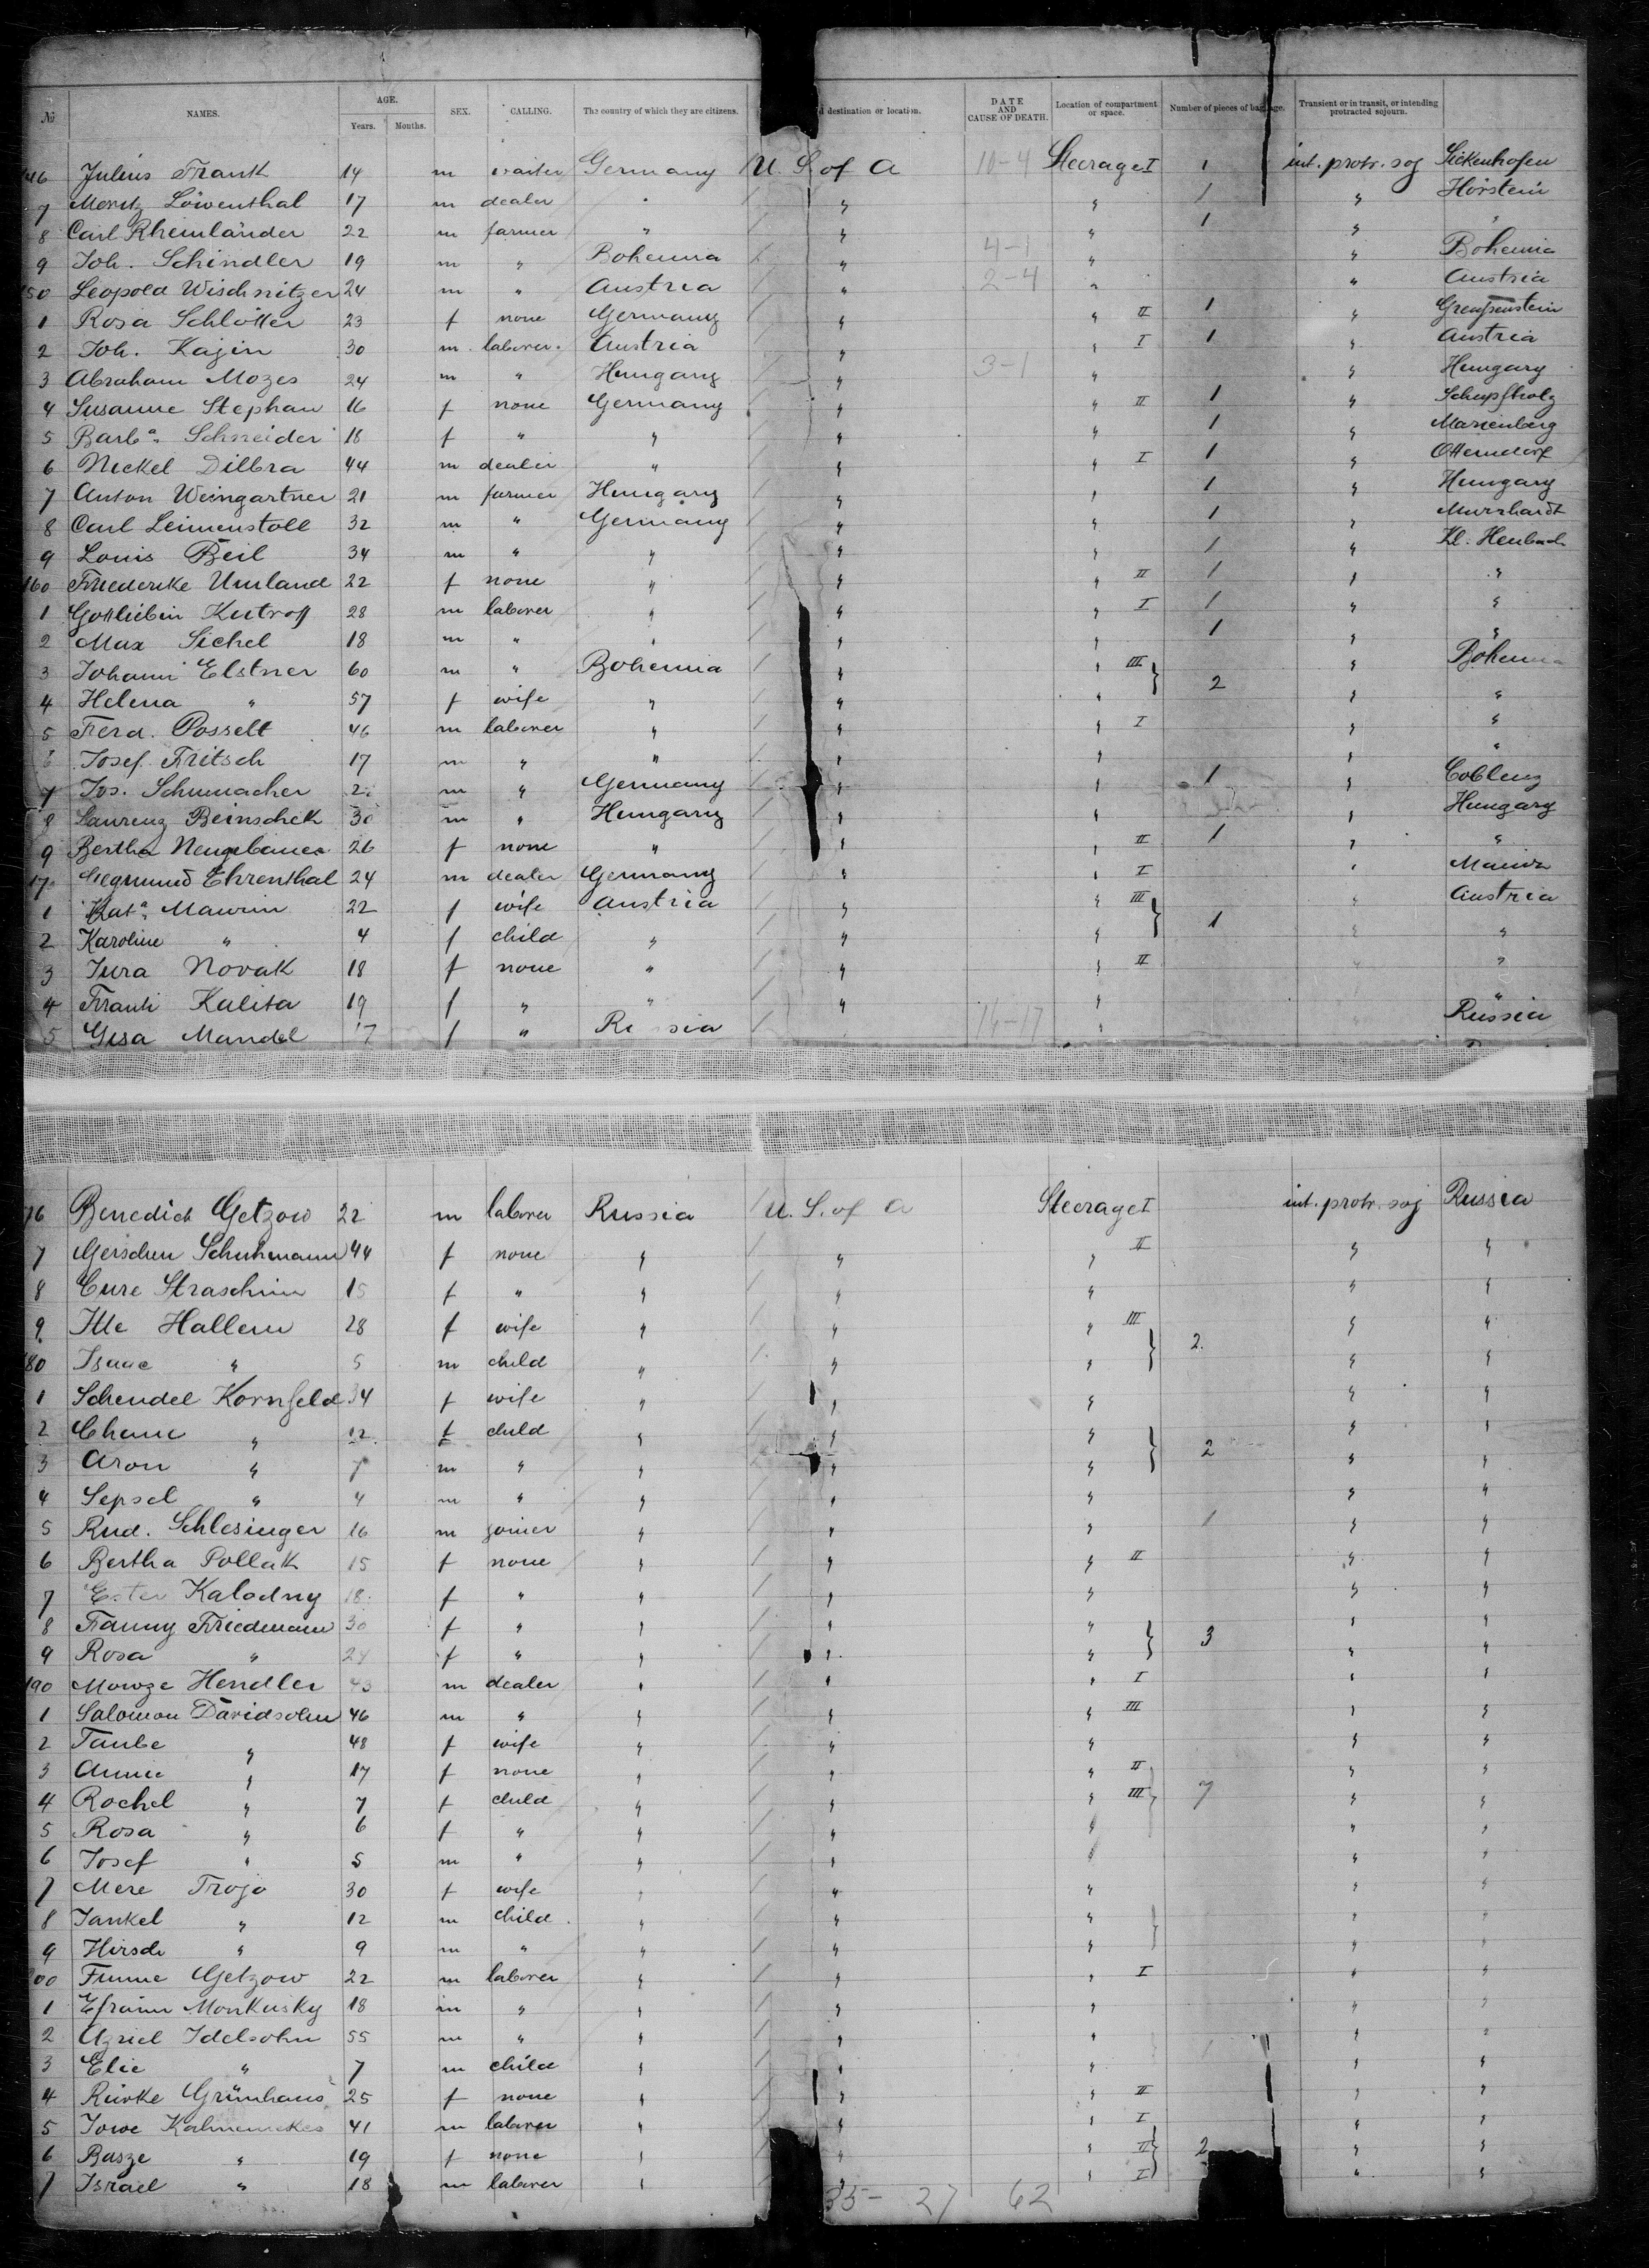 № NAMES. AGE. Years. Months. SEX. CALLING. The country of which they are citizens. d destination or location. DATE AND CAUSE OF DEATH. Location of compartment or space. Number of pieces of baggage. Transient or in transit, or intending protracted sojourn.
146 Julius Frank 14 m waiter Germany U. S. of A 10-4 Steerage I 1 int. protr. soj Sickenhofen
7 Moritz Löwenthal 17 m dealer " " " 1 " Hörstein
8 Carl Rheinländer 22 m farmer " " " 1 " "
9 Joh. Schindler 19 m " Bohemia " 4-1 " " Bohemia
150 Leopold Wischnitzer 24 m " Austria " 2-4 " " Austria
1 Rosa Schlötter 23 f none Germany " " II 1 "
2 Joh. Kajin 30 m laborer Austria " " I 1 " Austria
3 Abraham Mozes 24 m " Hungary " 3-1 " " Hungary
4 Susanne Stephan 16 f none Germany " " II 1 "
5 Barba. Schneider 18 f " " " " 1 " Marienberg
6 Nickel Dilbra 44 m dealer " " " I 1 " Otterndorf
7 Anton Weingartner 21 m farmer Hungary " " 1 " Hungary
8 Carl Leimenstoll 32 m " Germany " " 1 " Murrhardt
9 Louis Beil 34 m " " " " 1 " Kl. Heubach
160 Friederike Umland 22 f none " " " II 1 " "
1 Gottliebin Kutroff 28 m laborer " " " I 1 " "
2 Max Sichel 18 m " " " " 1 " "
3 Johann Elstner 60 m " Bohemia " " III } 2 " Bohemia
4 Helena " 57 f wife " " " " "
5 Ferd. Posselt 46 m laborer " " " I " "
6 Josef Fritsch 17 m " " " " " "
7 Jos. Schumacher 2 m " Germany " " 1 " Coblenz
8 Laurenz Beinschek 30 m " Hungary " " " Hungary
9 Bertha Neugebauer 26 f none " " " II 1 " "
170 Siegmund Ehrenthal 24 m dealer Germany " " I " Mainz
1 Kata. Mawrin 22 f wife Austria " " III } 1 " Austria
2 Karoline " 4 f child " " " " "
3 Jura Novak 18 f none " " " II " "
4 Franti Kalita 19 f " " " " "
5 Gisa Mandel 17 f " Russia 14-17 " Russia
176 Benedich Getzow 22 m laborer Russia U. S. of A Steerage I int. protr. soj Russia
7 Gerschen Schuhmann 44 f none " " " II " "
8 Cure Straschun 15 f " " " " " "
9 Itte Hallern 28 f wife " " " III } 2. " "
180 Isaac " 5 m child " " " " "
1 Schendel Kornfeld 34 f wife " " " " "
2 Chane " 12 f child " " " } 2 " "
3 Aron " 7 m " " " " " "
4 Sepsel " 4 m " " " " " "
5 Rud. Schlesinger 16 m joiner " " " 1 " "
6 Bertha Pollak 15 f none " " " II " "
7 Ester Kalodny 18 f " " " " " "
8 Fanny Friedmann 30 f " " " " } 3 " "
9 Rosa " 24 f " " " " " "
190 Mowze Hendler 43 m dealer " " " I " "
1 Salomon Davidsohn 46 m " " " " III " "
2 Taube " 48 f wife " " " " "
3 Annie " 17 f none " " " II " "
4 Rochel " 7 f child " " " III } 7 " "
5 Rosa " 6 f " " " " " "
6 Josef " 5 m " " " " " "
7 Mere Trojo 30 f wife " " " " "
8 Jankel " 12 m child " " " } " "
9 Hirsch " 9 m " " " " " "
200 Fume Getzow 22 m laborer " " " I " "
1 Efraim Monkusky 18 m " " " " " "
2 Azriel Idelsohn 55 m " " " " " "
3 Elie " 7 m child " " " " "
4 Riwke Grünhaus 25 f none " " " II " "
5 Jowe 41 m laborer " " " I " "
6 Basze " 19 f none " " " II } 2 " "
7 Israel " 18 m laborer " " " I " "
35- 27 62